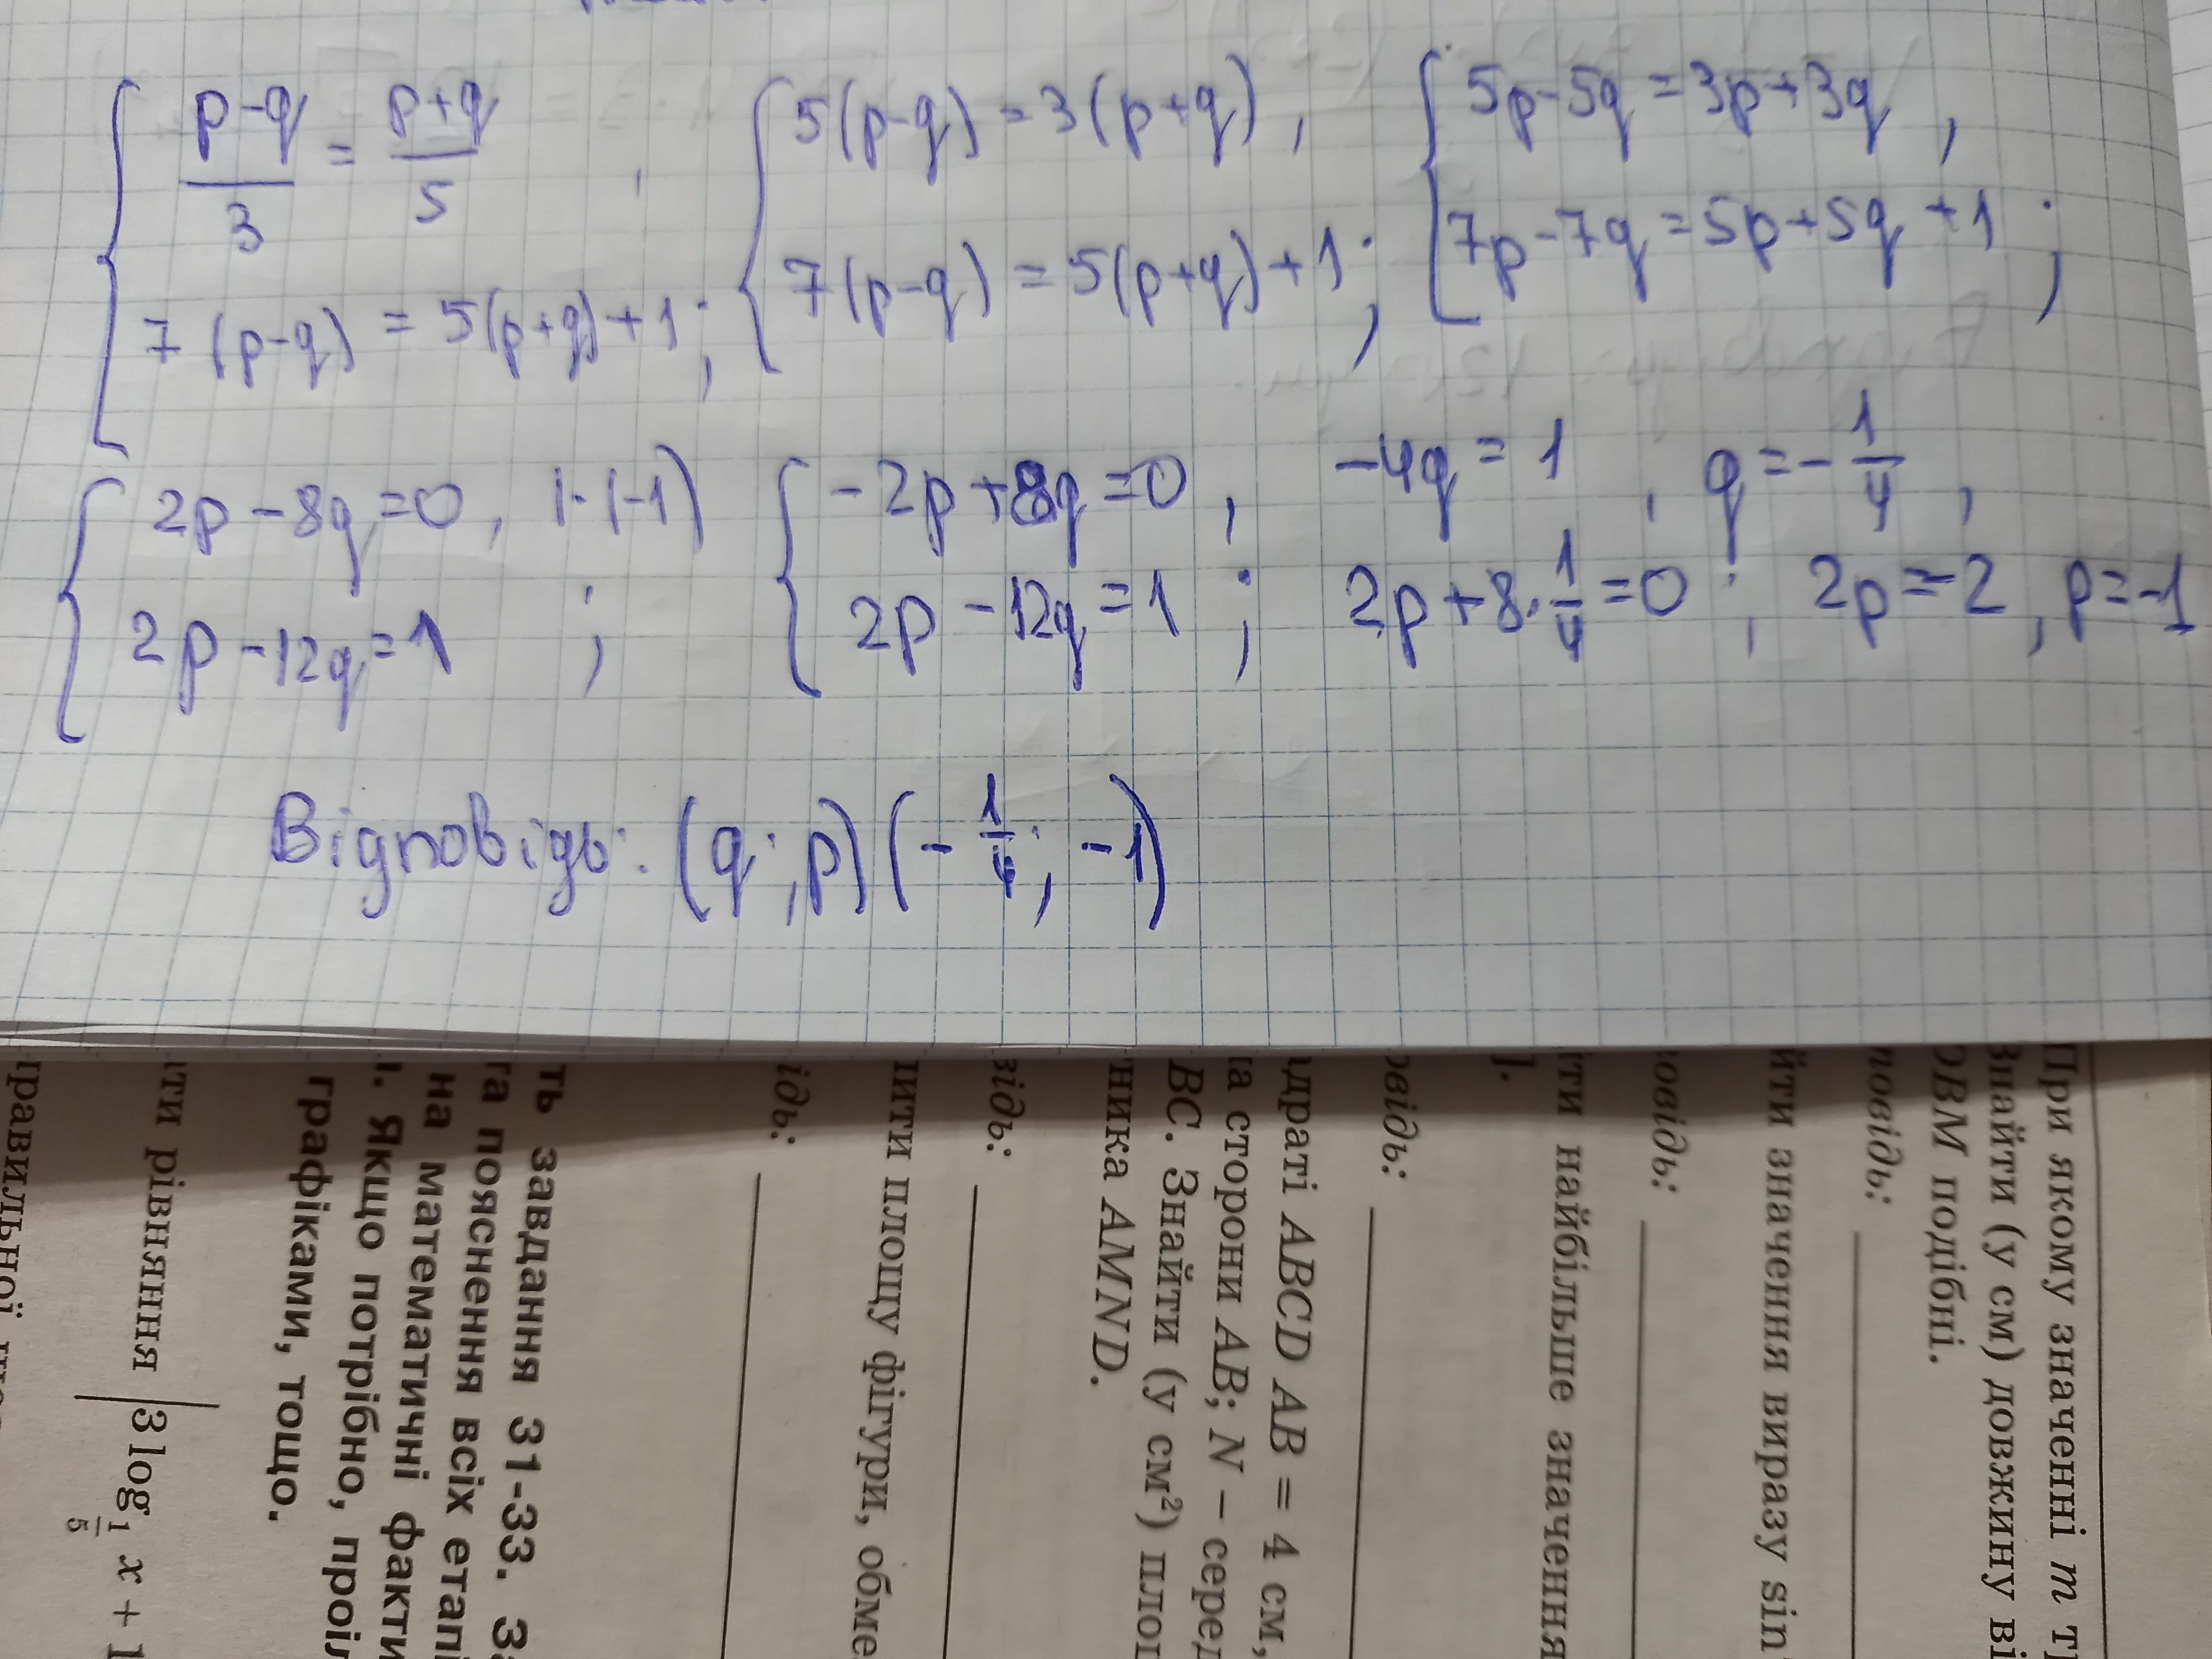 { (p-q)/3 = (p+q)/5 , { 5(p-q) = 3(p+q) , { 5p-5q = 3p+3q ,
7(p-q) = 5(p+q)+1 ; 7(p-q) = 5(p+q)+1 ; 7p-7q = 5p+5q+1 ;
{ 2p-8q=0, |·(-1) { -2p+8q=0 , -4q = 1 , q = -1/4 ,
2p-12q=1 ; 2p-12q=1 ; 2p+8·1/4=0 ; 2p=-2 , p=-1
Відповідь: (q ; p) (-1/4; -1)
При якому значенні m
Знайти (у см) довжину ві
OBM подібні.
повідь:
йти значення виразу sin
повідь:
йти найбільше значення
].
овідь:
адраті ABCD AB = 4 см,
на сторони AB; N – серед
BC. Знайти (у см²) площ
ника AMND.
відь:
лити площу фігури, обме
ідь:
ть завдання 31-33. За
та пояснення всіх етапі
на математичні факти
. Якщо потрібно, проіл
графіками, тощо.
ти рівняння |3log_{1/5} x + 1
правильної